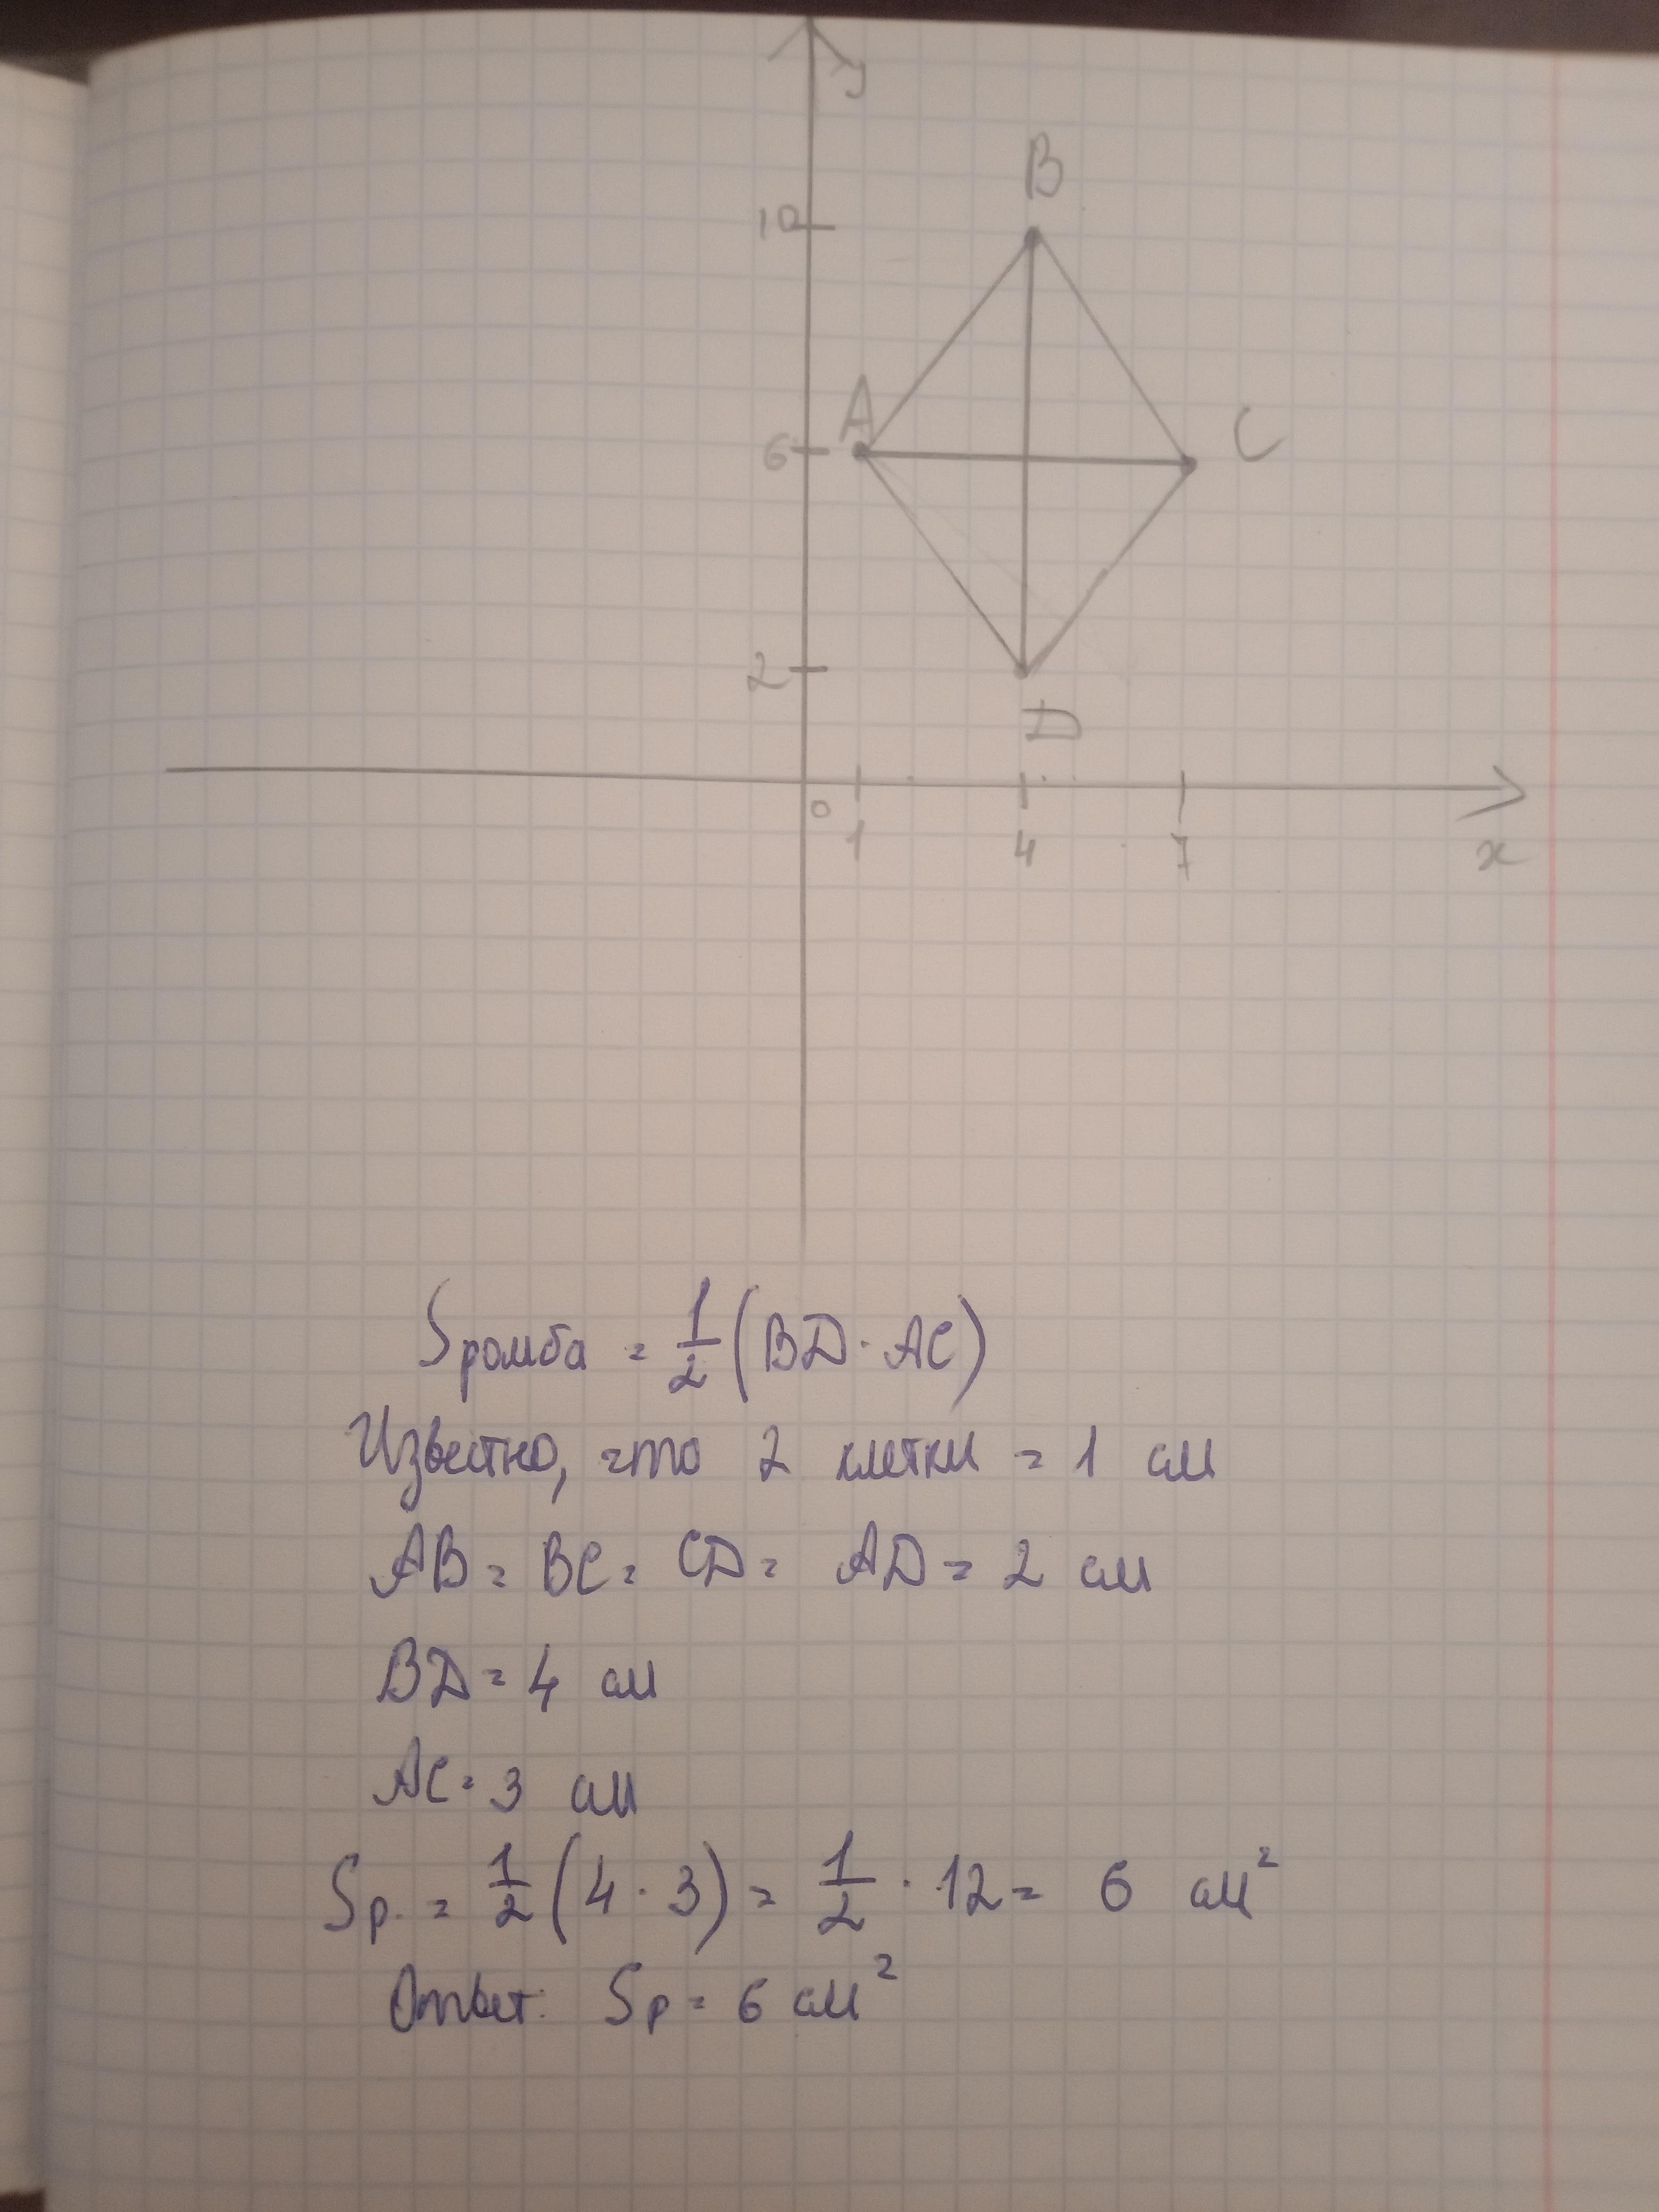 y
B
10
A
6
C
2
D
0
1 4 7
x
Sромба = 1/2 (BD · AC)
Известно, что 2 клетки = 1 см
AB = BC = CD = AD = 2 см
BD = 4 см
AC = 3 см
Sр. = 1/2 (4 · 3) = 1/2 · 12 = 6 см²
Ответ: Sр = 6 см²